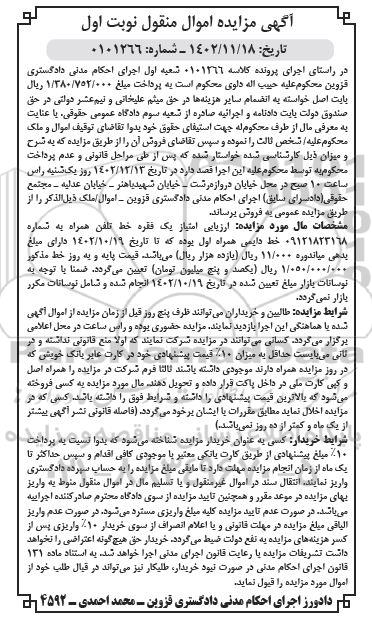 آگهی مزایده اموال منقول نوبت اول
تاریخ: ۱۴۰۲/۱۱/۱۸ ـ شماره: ۰۱۰۱۲۶۶
در راستای اجرای پرونده کلاسه ۰۱۰۱۲۶۶ شعبه اول اجرای احکام مدنی دادگستری
قزوین محکوم‌علیه حبیب اله داوی محکوم است به پرداخت مبلغ ۱/۳۸۰/۷۵۲/۰۰۰ ریال
بابت اصل خواسته به انضمام سایر هزینه‌ها در حق میثم علیخانی و نیم‌عشر دولتی در حق
صندوق دولت بابت دادنامه و اجرائیه صادره از شعبه سوم دادگاه عمومی حقوقی، با عنایت
به معرفی مال از طرف محکوم‌له جهت استیفای حقوق خود بدوا تقاضای توقیف اموال و ملک
محکوم‌علیه/ شخص ثالث را نموده و سپس تقاضای فروش آن را از طریق مزایده که به شرح
و میزان ذیل کارشناسی شده خواستار شده که پس از طی مراحل قانونی و عدم پرداخت
محکوم‌به توسط محکوم‌علیه این اجرا قصد دارد در تاریخ ۱۴۰۲/۱۲/۱۳ روز یکشنبه راس
ساعت ۱۰ صبح در محل خیابان دروازه‌رشت ـ خیابان شهیدباهنر ـ خیابان عدلیه ـ مجتمع
حقوقی(دادسرای سابق) اجرای احکام مدنی دادگستری قزوین ـ اموال/ملک ذیل‌الذکر را از
طریق مزایده عمومی به فروش برساند.
مشخصات مال مورد مزایده: ارزیابی امتیاز یک فقره خط تلفن همراه به شماره
۰۹۱۲۱۸۲۳۱۶۸ خط دایمی همراه اول بوده که تا تاریخ ۱۴۰۲/۱۰/۱۹ دارای مبلغ
بدهی میاندوره ۱۱/۰۰۰ ریال (یازده هزار ریال) می‌باشد. قیمت پایه و به روز خط مذکور
۱/۰۵۰/۰۰۰/۰۰۰ ریال (یکصد و پنج میلیون تومان) تعیین می‌گردد. ضمنا با توجه به
نوسانات بازار مبلغ تعیین شده در تاریخ ۱۴۰۲/۱۰/۱۹ انجام شده و شامل نوسانات مکرر
بازار نمی‌گردد.
شرایط مزایده: طالبین و خریداران می‌توانند ظرف پنج روز قبل از زمان مزایده از اموال آگهی
شده با هماهنگی این اجرا بازدید نمایند. مزایده حضوری بوده و راس ساعت در محل اعلامی
برگزار می‌گردد. کسانی می‌توانند در مزایده شرکت نمایند که اولا منع قانونی نداشته و در
ثانی می‌بایست حداقل به میزان ۱۰٪ قیمت پیشنهادی خود در کارت عابر بانک خویش که
در روز مزایده همراه دارند موجودی داشته باشند ثالثا فرم شرکت در مزایده را همراه اصل
و کپی کارت ملی در داخل پاکت قرار داده و تحویل دهند. مال مورد مزایده به کسی فروخته
می‌شود که بالاترین قیمت پیشنهادی را داشته و شرایط فوق را داشته باشد. کسی که در
مزایده اخلال نماید مطابق مقررات با ایشان برخورد می‌گردد. (فاصله قانونی نشر آگهی بیشتر
از یک ماه و کمتر از ده روز نمی‌باشد)
شرایط خریدار: کسی به عنوان خریدار مزایده شناخته می‌شود که بدوا نسبت به پرداخت
۱۰٪ مبلغ پیشنهادی از طریق کارت بانکی معتبر با موجودی کافی اقدام و سپس حداکثر تا
یک ماه از زمان انجام مزایده مهلت دارد تا مابقی مبلغ مزایده را به حساب سپرده دادگستری
واریز نمایند. انتقال سند در اموال غیرمنقول و یا تسلیم مال در اموال منقول منوط به واریز
بهای مزایده در موعد مقرر و همچنین تایید مزایده از سوی دادگاه محترم صادرکننده اجراییه
می‌باشد. در صورت عدم تایید مزایده کلیه مبلغ واریزی مسترد می‌شود. در صورت عدم واریز
الباقی مبلغ مزایده در مهلت قانونی و یا اعلام انصراف از سوی خریدار ۱۰٪ واریزی پس از
کسر هزینه‌های مزایده به نفع دولت ضبط می‌گردد. خریدار حق هیچ‌گونه اعتراضی را نخواهد
داشت تشریفات مزایده با رعایت قانون اجرای مدنی اجرا خواهد شد. به استناد ماده ۱۳۱
قانون اجرای احکام مدنی در صورت نبود خریدار، طلبکار نیز می‌تواند در قبال طلب خود از
اموال مورد مزایده را قبول نماید.
دادورز اجرای احکام مدنی دادگستری قزوین ـ محمد احمدی ـ ۴۵۹۲